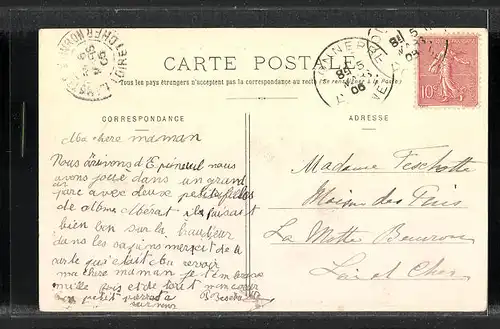 CARTE POSTALE
Tous les pays étrangers n'acceptent pas la correspondance au recto (Se
CORRESPONDANCE
ADRESSE
10
Ma chere maman
Nous arivons d'Epineuil nous
avons joué dans un grand
parc avec deux petites filles
de Mme Mérat il faisait
bien bon sur la hauteur
dans les sapins merci de la
carte que
ma chere maman je t'embrasse
mille fois et de tout mon coeur
ton petit
Madame
Maison des Pins
La Motte Beuvron
Loir et Cher